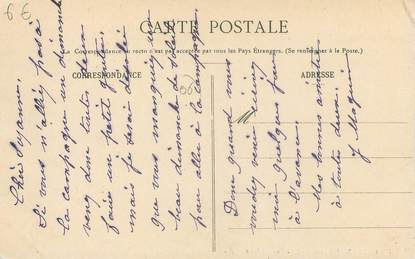 66
CARTE POSTALE
La Correspondance au recto n'est pas acceptée par tous les Pays Étrangers. (Se renseigner à la Poste.)
CORRESPONDANCE
ADRESSE
Chère Suzanne.
Si vous n'allez pas à
la campagne un dimanche
venez donc toutes deux
faire un petit goûter
mais je serai
que vous manquiez un
beau dimanche de soleil
pour aller à la campagne.
Donc quand vous
voudrez venir
moi quelques jours
à l'avance.
Mes bonnes amitiés
à toutes deux.